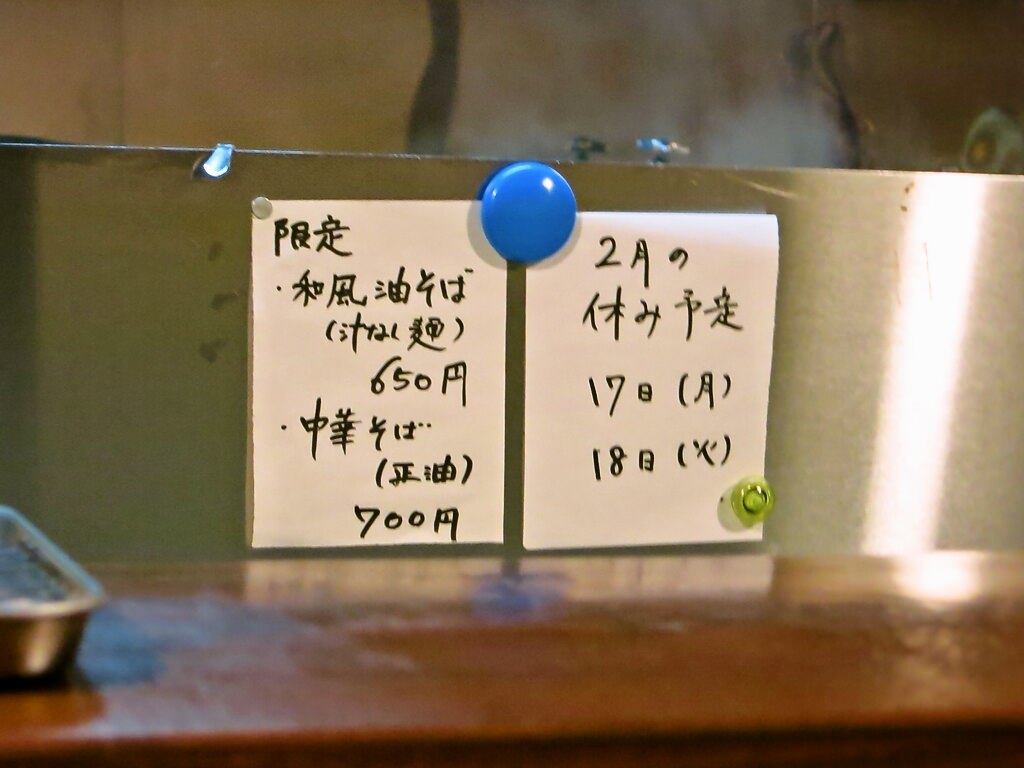 限定
・和風油そば
(汁なし麺)
650円
・中華そば
(正油)
700円
2月の
休み予定
17日(月)
18日(火)